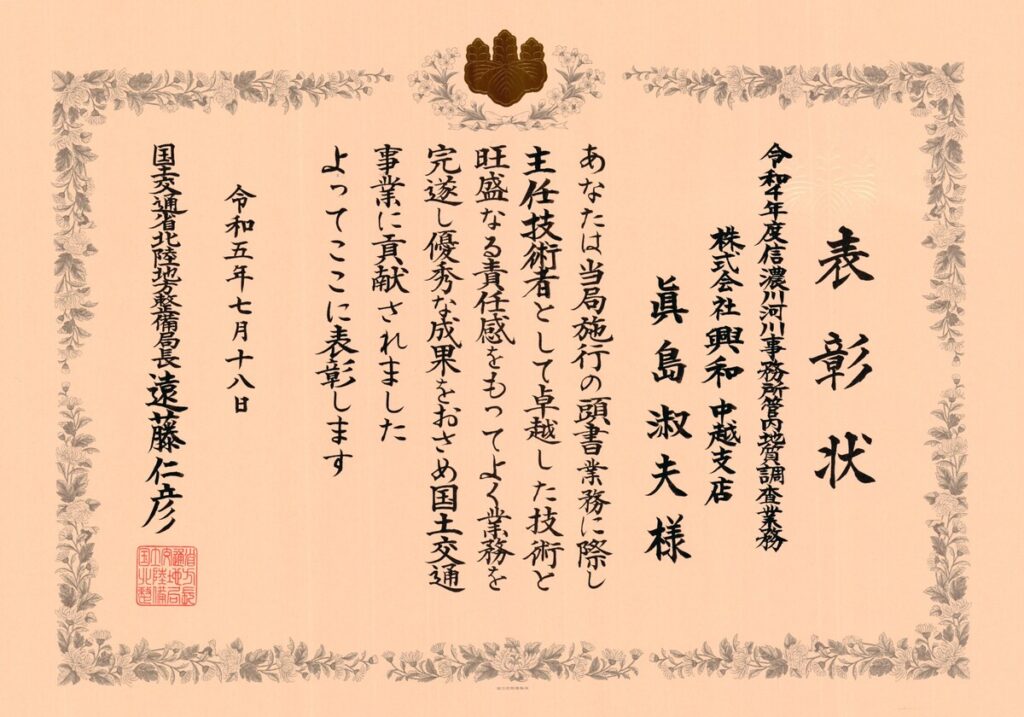 表彰状
令和4年度信濃川河川事務所管内地質調査業務
株式会社 興和 中越支店
眞島淑夫様
あなたは当局施行の頭書業務に際し
主任技術者として卓越した技術と
旺盛なる責任感をもってよく業務を
完遂し優秀な成果をおさめ国土交通
事業に貢献されました
よってここに表彰します
令和五年七月十八日
国土交通省北陸地方整備局長 遠藤仁彦